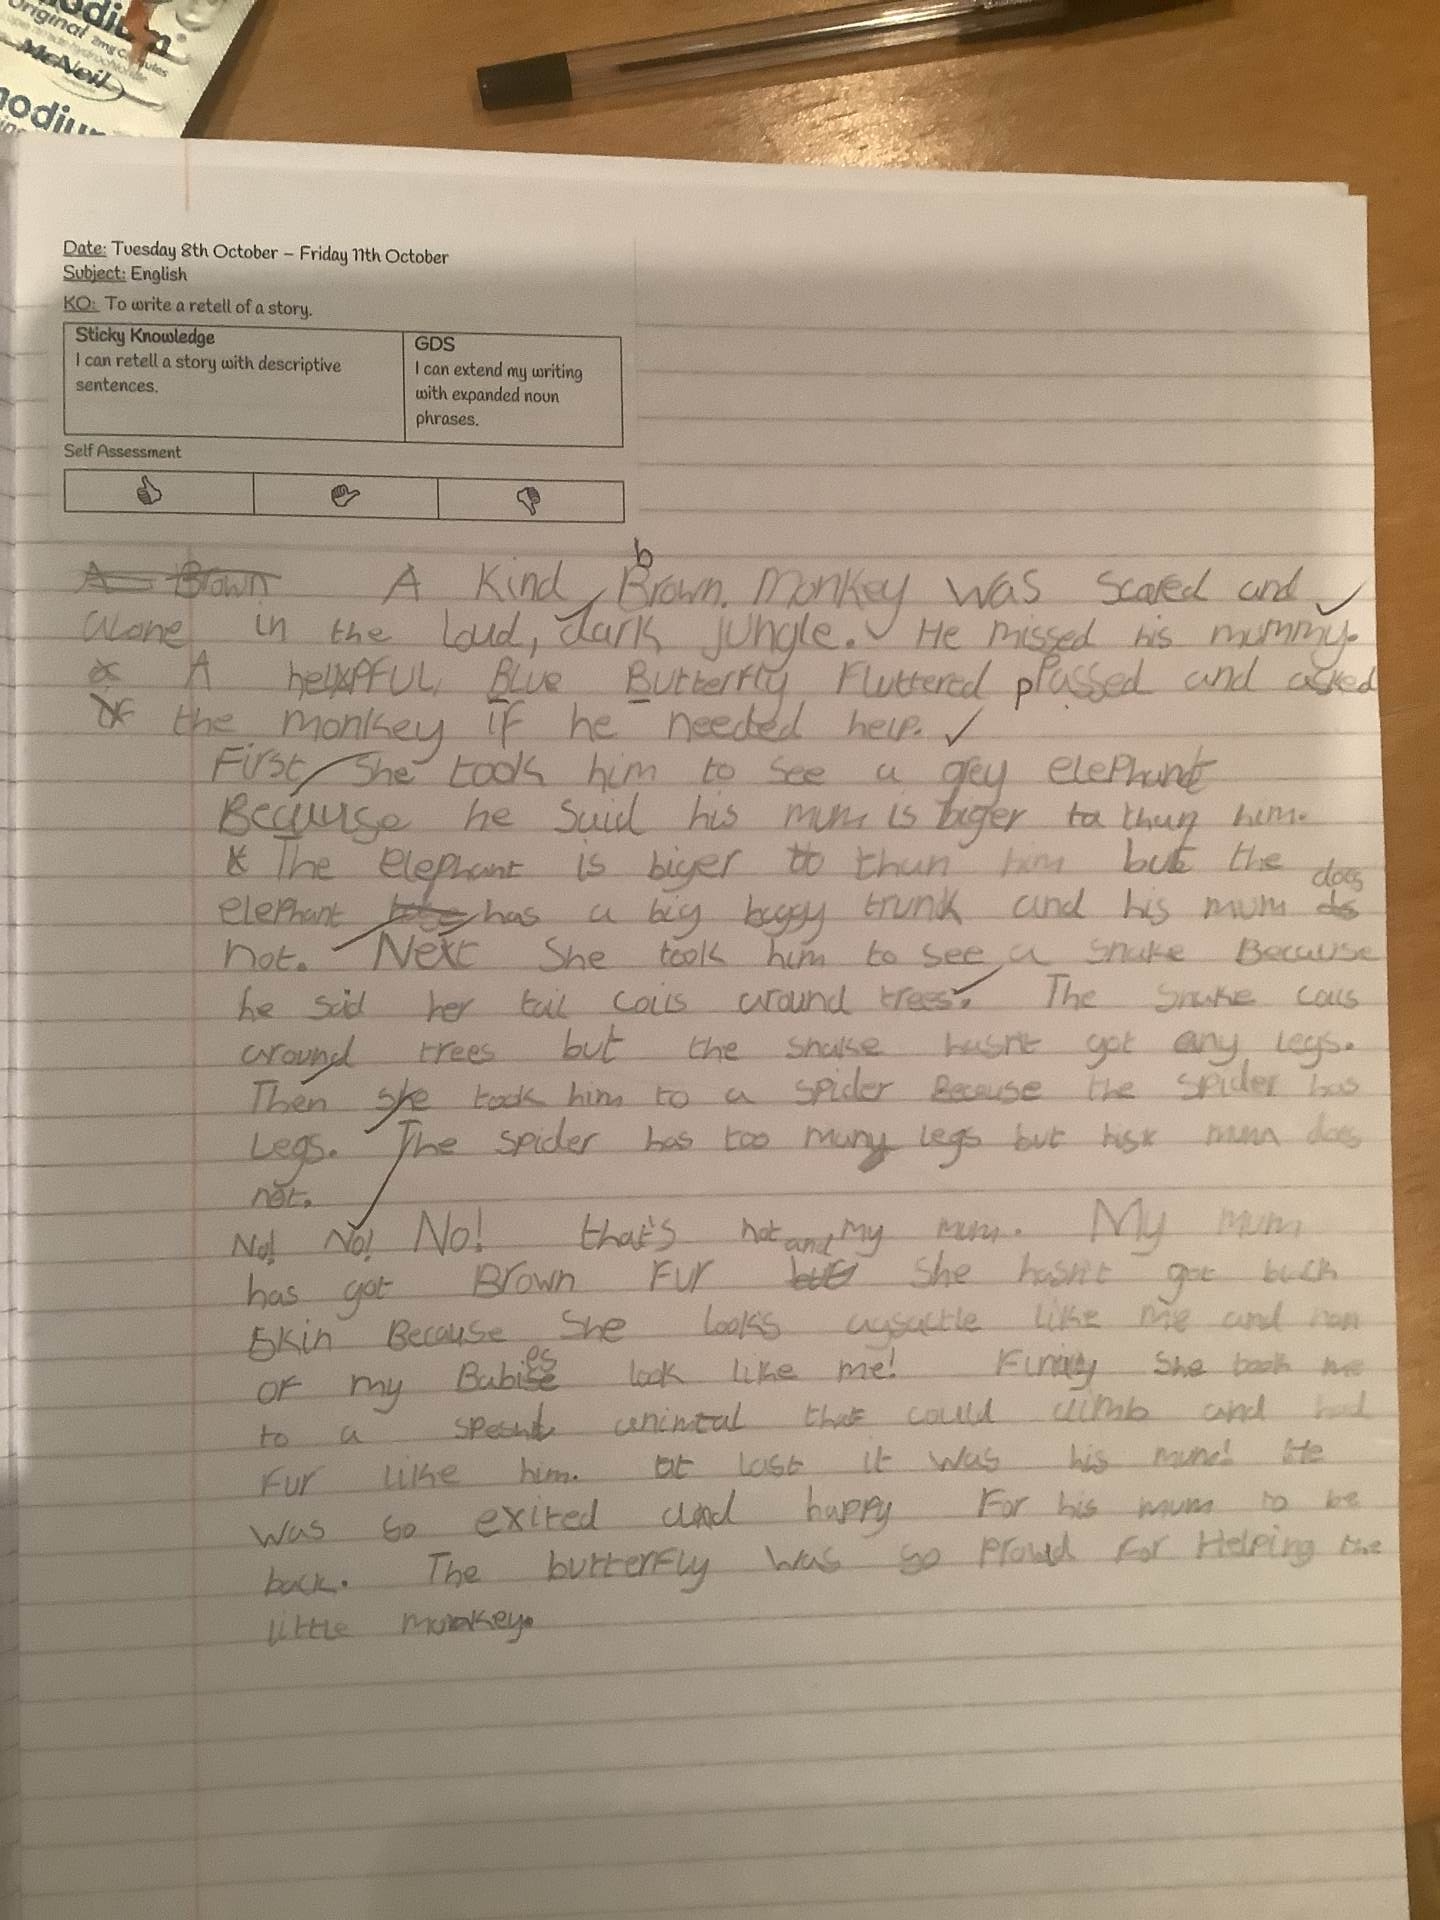 Original 2mg Capsules
McNeil
Date: Tuesday 8th October – Friday 11th October
Subject: English
KO: To write a retell of a story.
Sticky Knowledge
I can retell a story with descriptive
sentences.
GDS
I can extend my writing
with expanded noun
phrases.
Self Assessment
A Brown A Kind, Brown Monkey was scared and
b
alone in the loud, dark jungle. He missed his mummy.
A helpful, Blue Butterfly Fluttered passed and asked
the monkey if he needed help.
First, She took him to see a grey elephant
Because he said his mum is biger than him.
The elephant is biger than him but the
elephant has a big baggy trunk and his mum does
not. Next She took him to see a snake Because
he said her tail coils around trees. The snake coils
around trees but the snake hasn't got any legs.
Then she took him to a spider Because the spider has
Legs. The spider has too many legs but his mum does
not.
No! No! No! that's not my mum. My mum
has got Brown Fur and She hasn't got
skin Because She looks like me and non
of my Babies look like me! She took me
to a animal that could climb and had
Fur like him. at last it was his mum! He
was so exited and happy For his mum to be
back. The butterfly was so proud for Helping the
little monkey.